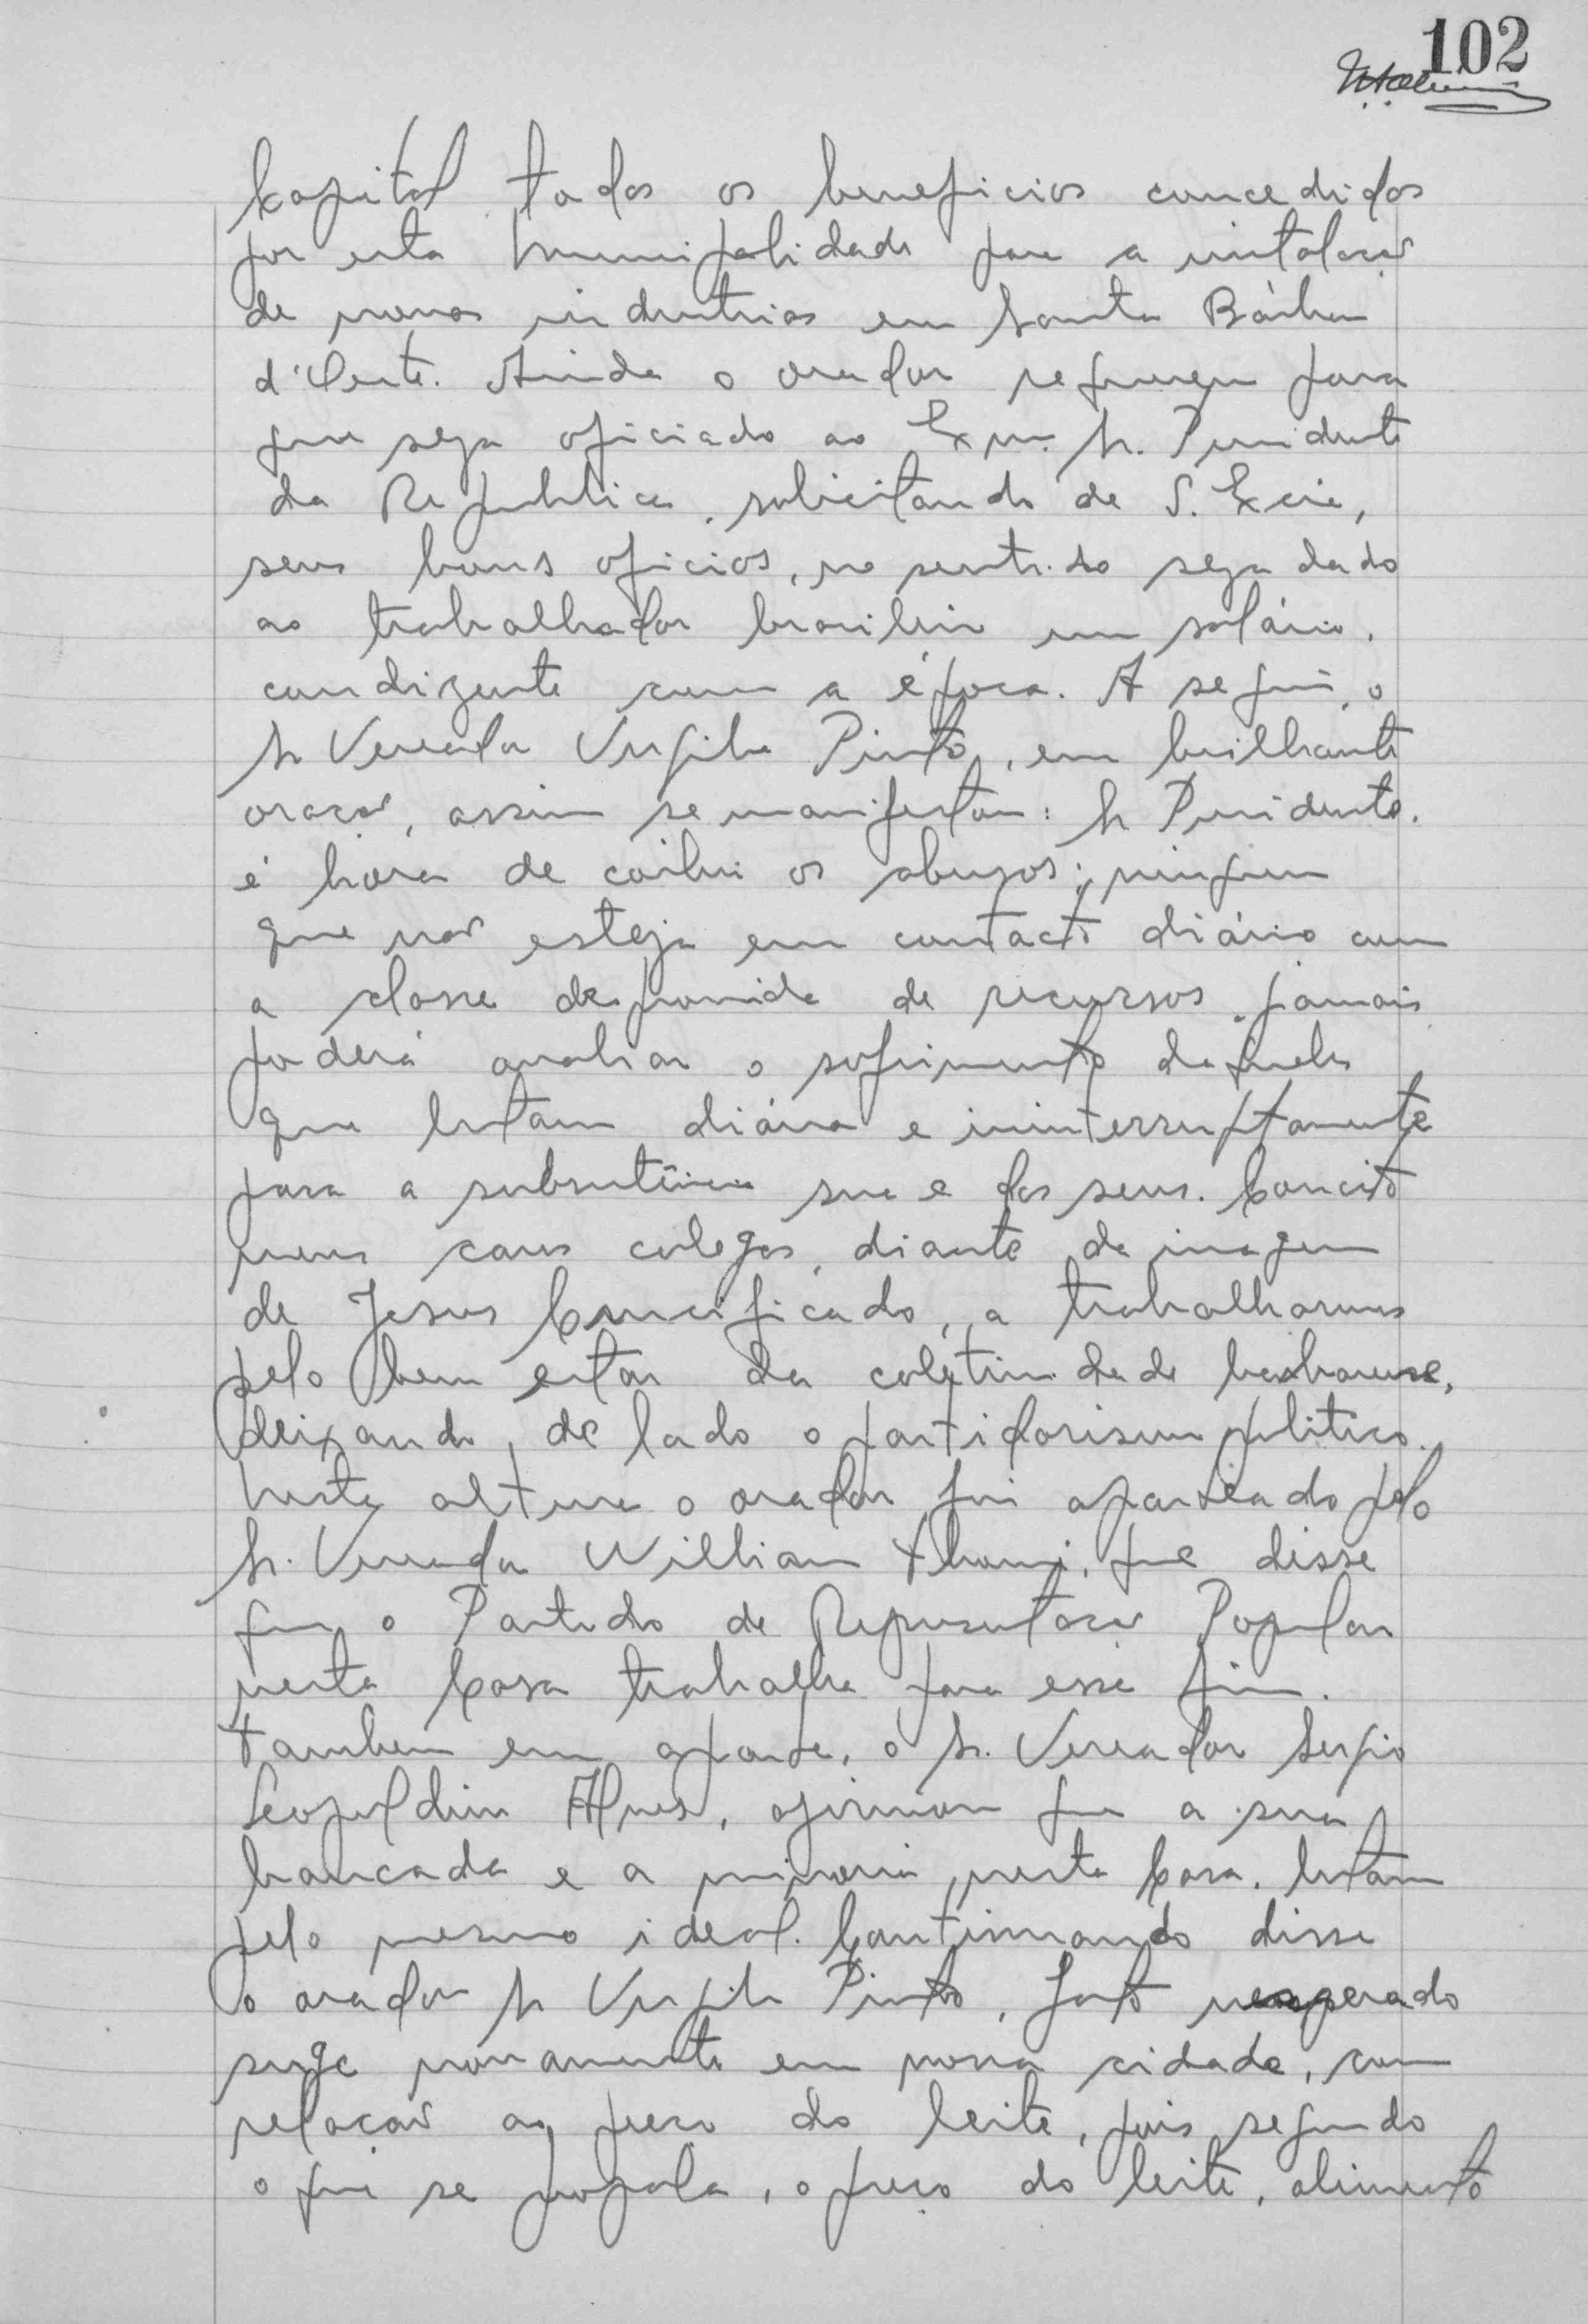 102
Capital todos os beneficios concedidos
por esta Municipalidade para a instalação
de novas industrias em Santa Bárbara
d'Oeste. Ainda o orador requereu para
que seja oficiado ao Exmo. Sr. Presidente
da Republica, solicitando de S. Excia,
seus bons oficios, no sentido seja dado
ao trabalhador brasileiro um salário,
condizente com a época. A seguir, o
Sr Vereador Virgilio Pinto, em brilhante
oração, assim se manifestou: Sr Presidente,
é hora de coibir os abusos; ninguem
que não esteja em contacto diário com
a classe desprovida de recursos, jamais
poderá avaliar o sofrimento daqueles
que lutam diária e ininterruptamente
para a subsistência sua e dos seus. Concito
meus caros colegas, diante da imagem
de Jesus Crucificado, a trabalharmos
pelo bem estar da coletividade barbarense,
deixando, de lado o partidarismo politico.
Nesta altura o orador foi aparteado pelo
Sr. Vereador William que disse
que o Partido de Representação Popular
nesta Casa trabalha para esse fim.
Tambem em aparte, o Sr. Vereador Sergio
Leopoldino Alves, afirmou que a sua
bancada e a minoria, nesta Casa, lutam
pelo mesmo ideal. Continuando disse
o orador Sr Virgilio Pinto, fato inesperado
surge novamente em nossa cidade, com
relação ao preço do leite, pois segundo
o que se propala, o preço do leite, alimento